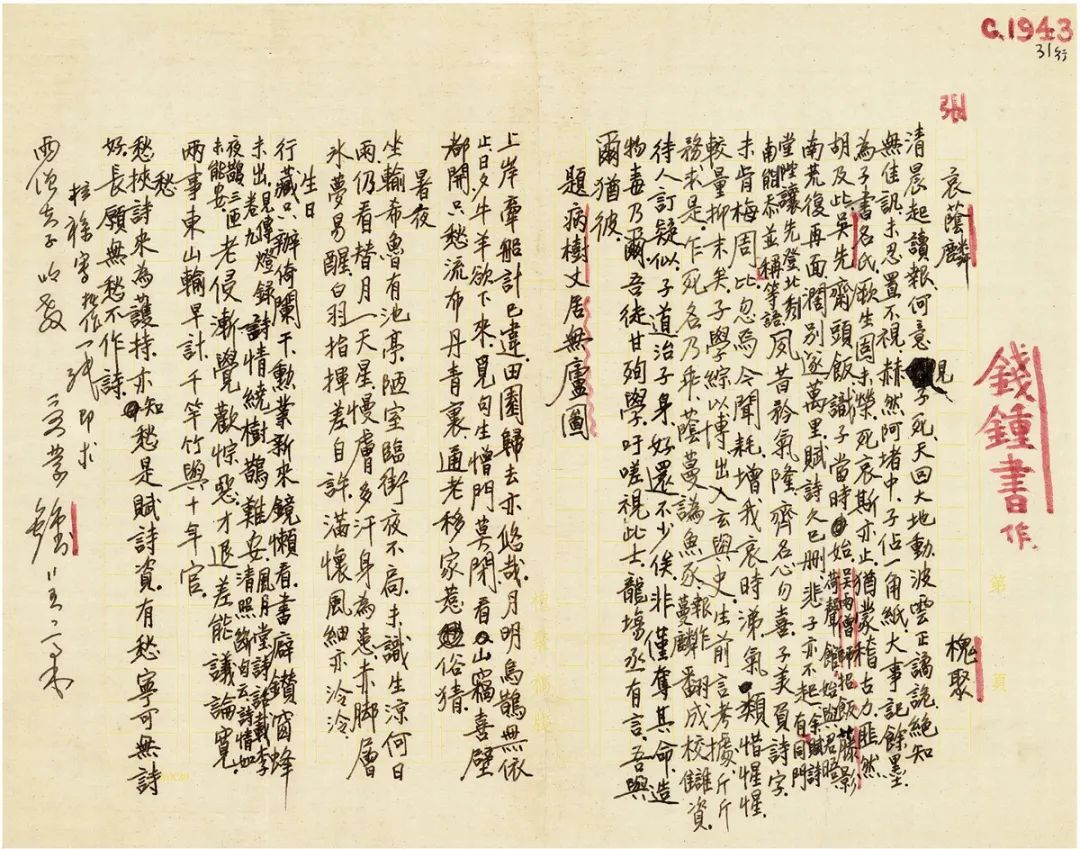 C.1943
31行
錢鍾書作
張
哀蔭麟
槐聚
清晨起讀報,何意見子死.天回大地動,波雲正譎詭.絕知
無佳訊,未忍置不視.赫然阿堵中,子佔一角紙.大事記餘墨,
為子書名氏.厥生固未榮,死哀斯亦止.猶蒙稽古力,匪然
胡及此.吳先齋頭飯,識子當時始.吳雨僧師招飯藤影荷聲館,始與君晤.
南荒復再面,闊別遂萬里.賦詩久已刪,悲子亦不起.余賦詩有同門
堂陛讓先登,北秀南能忝並稱等語.夙昔矜氣隆,齊名心勿喜.子美負詩字,
未肯梅周比.忽焉今聞耗,增我哀時涕.氣類惜惺惺,
較量抑末矣.子學綜以博,出入玄與史.生前言考據,斤斤
務求是.乍死名乃乖,蔭蔓譌魚豕.報作蔓麟.翻成校讎資,
待人訂疑似.子道治子身,好還不少俟.非僅奪其命,造
物毒乃爾.吾徒甘殉學,吁嗟視此士.龍塲丞有言,吾與
爾猶彼.
題病樹丈居無廬圖
上岸牽船計已違,田園歸去亦悠哉.月明烏鵲無依
止,日夕牛羊欲下來.覓句生憎門莫閉,看山竊喜壁
都開.只愁流布丹青裏,通老移家惹俗猜.
暑夜
坐輸希魯有池亭,陋室臨街夜不扃.未識生涼何日
雨,仍看替月一天星.慢膚多汗身為患,赤脚層
冰夢易醒.白羽指揮差自許,滿懷風細亦泠泠.
生日
行藏只辦倚闌干,勳業新來鏡懶看.書癖鑽窗蜂
未出,見傳燈錄卷九.詩情繞樹鵲難安.風月堂詩話載李清照斷句云詩情如
夜鵲,三匝未能安.老侵漸覺歡悰退,才退差能議論寬.
兩事東山輸早計,千竿竹與十年官.
愁
愁挾詩來為護持,亦知愁是賦詩資.有愁寧可無詩
好,長願無愁不作詩.
拉雜寫拙作一哂即求
雨僧夫子吟教
受業 鍾書上